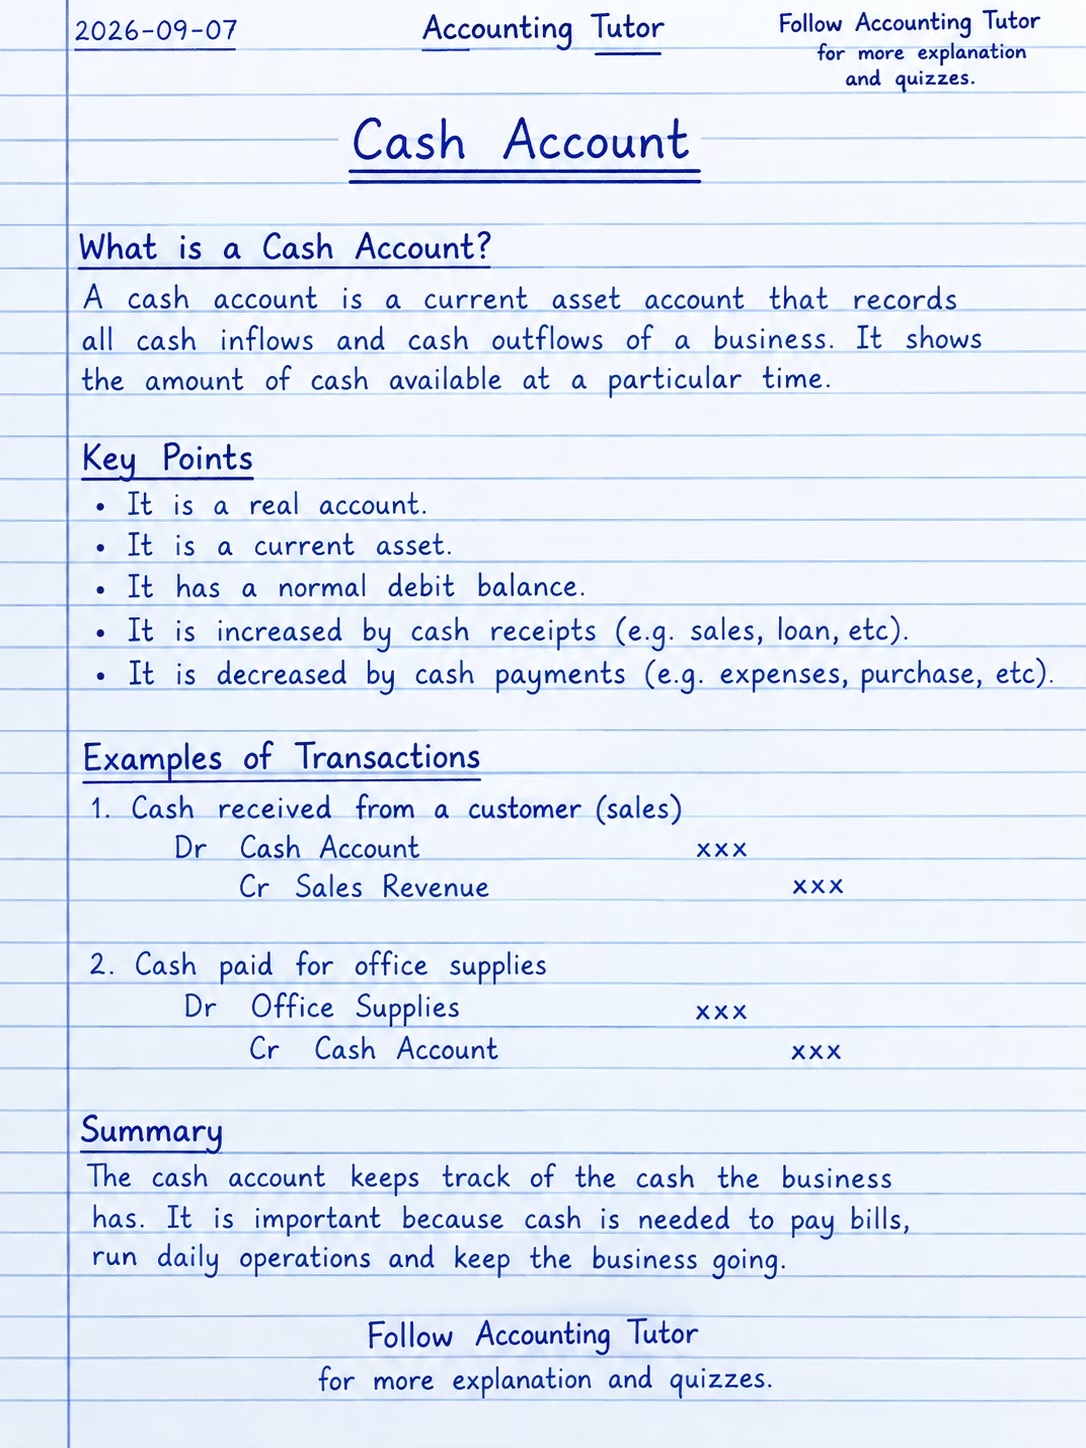 2026-09-07
Accounting Tutor
Follow Accounting Tutor
for more explanation
and quizzes.
Cash Account
What is a Cash Account?
A cash account is a current asset account that records
all cash inflows and cash outflows of a business. It shows
the amount of cash available at a particular time.
Key Points
• It is a real account.
• It is a current asset.
• It has a normal debit balance.
• It is increased by cash receipts (e.g. sales, loan, etc).
• It is decreased by cash payments (e.g. expenses, purchase, etc).
Examples of Transactions
1. Cash received from a customer (sales)
Dr Cash Account xxx
Cr Sales Revenue xxx
2. Cash paid for office supplies
Dr Office Supplies xxx
Cr Cash Account xxx
Summary
The cash account keeps track of the cash the business
has. It is important because cash is needed to pay bills,
run daily operations and keep the business going.
Follow Accounting Tutor
for more explanation and quizzes.